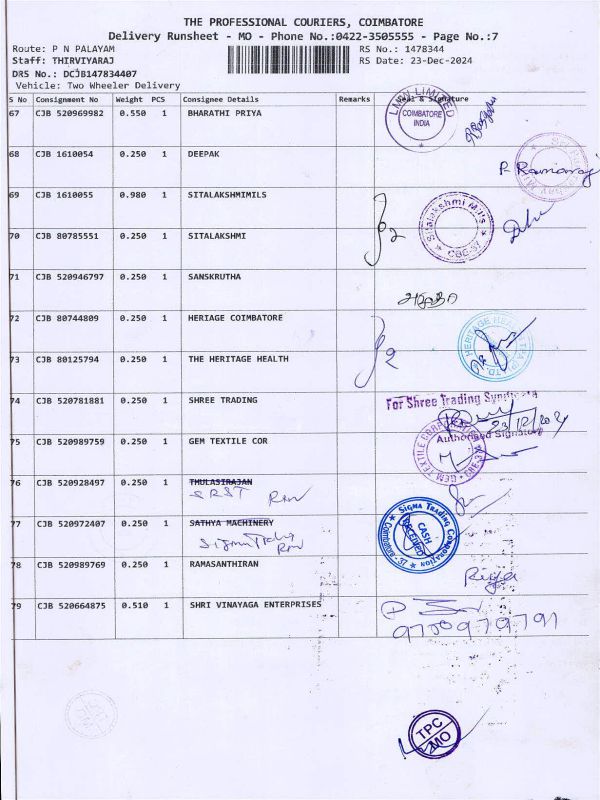 THE PROFESSIONAL COURIERS, COIMBATORE
Delivery Runsheet - MO - Phone No.:0422-3505555 - Page No.:7
Route: P N PALAYAM
RS No.: 1478344
Staff: THIRVIYARAJ
RS Date: 23-Dec-2024
DRS No.: DCJB147834407
Vehicle: Two Wheeler Delivery
S No Consignment No Weight PCS Consignee Details Remarks Seal & Signature
67 CJB 520969982 0.550 1 BHARATHI PRIYA
LMW LIMITED COIMBATORE INDIA
68 CJB 1610054 0.250 1 DEEPAK
69 CJB 1610055 0.980 1 SITALAKSHMIMILS
Sitalakshmi Mills CBE-37
70 CJB 80785551 0.250 1 SITALAKSHMI
2
71 CJB 520946797 0.250 1 SANSKRUTHA
72 CJB 80744809 0.250 1 HERIAGE COIMBATORE
73 CJB 80125794 0.250 1 THE HERITAGE HEALTH
2
74 CJB 520781881 0.250 1 SHREE TRADING
For Shree Trading Syndicate
23/12/2024
Authorised Signatory
75 CJB 520989759 0.250 1 GEM TEXTILE COR
76 CJB 520928497 0.250 1 THULASIRAJAN
SRST
77 CJB 520972407 0.250 1 SATHYA MACHINERY
SIGMA TRADING CORPORATION CASH RECEIVED Coimbatore - 37
78 CJB 520989769 0.250 1 RAMASANTHIRAN
Riya
79 CJB 520664875 0.510 1 SHRI VINAYAGA ENTERPRISES
TPC
MO